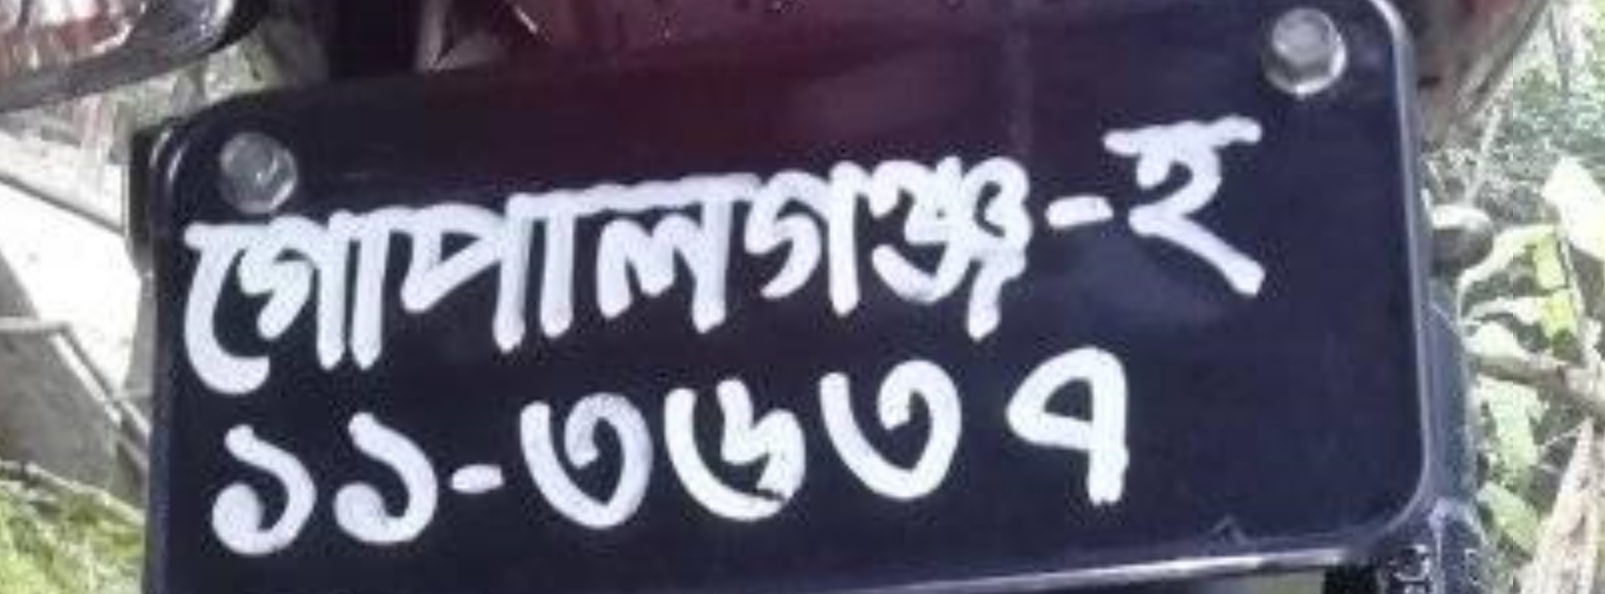 গোপালগঞ্জ-হ
১১-৩৬৩৭